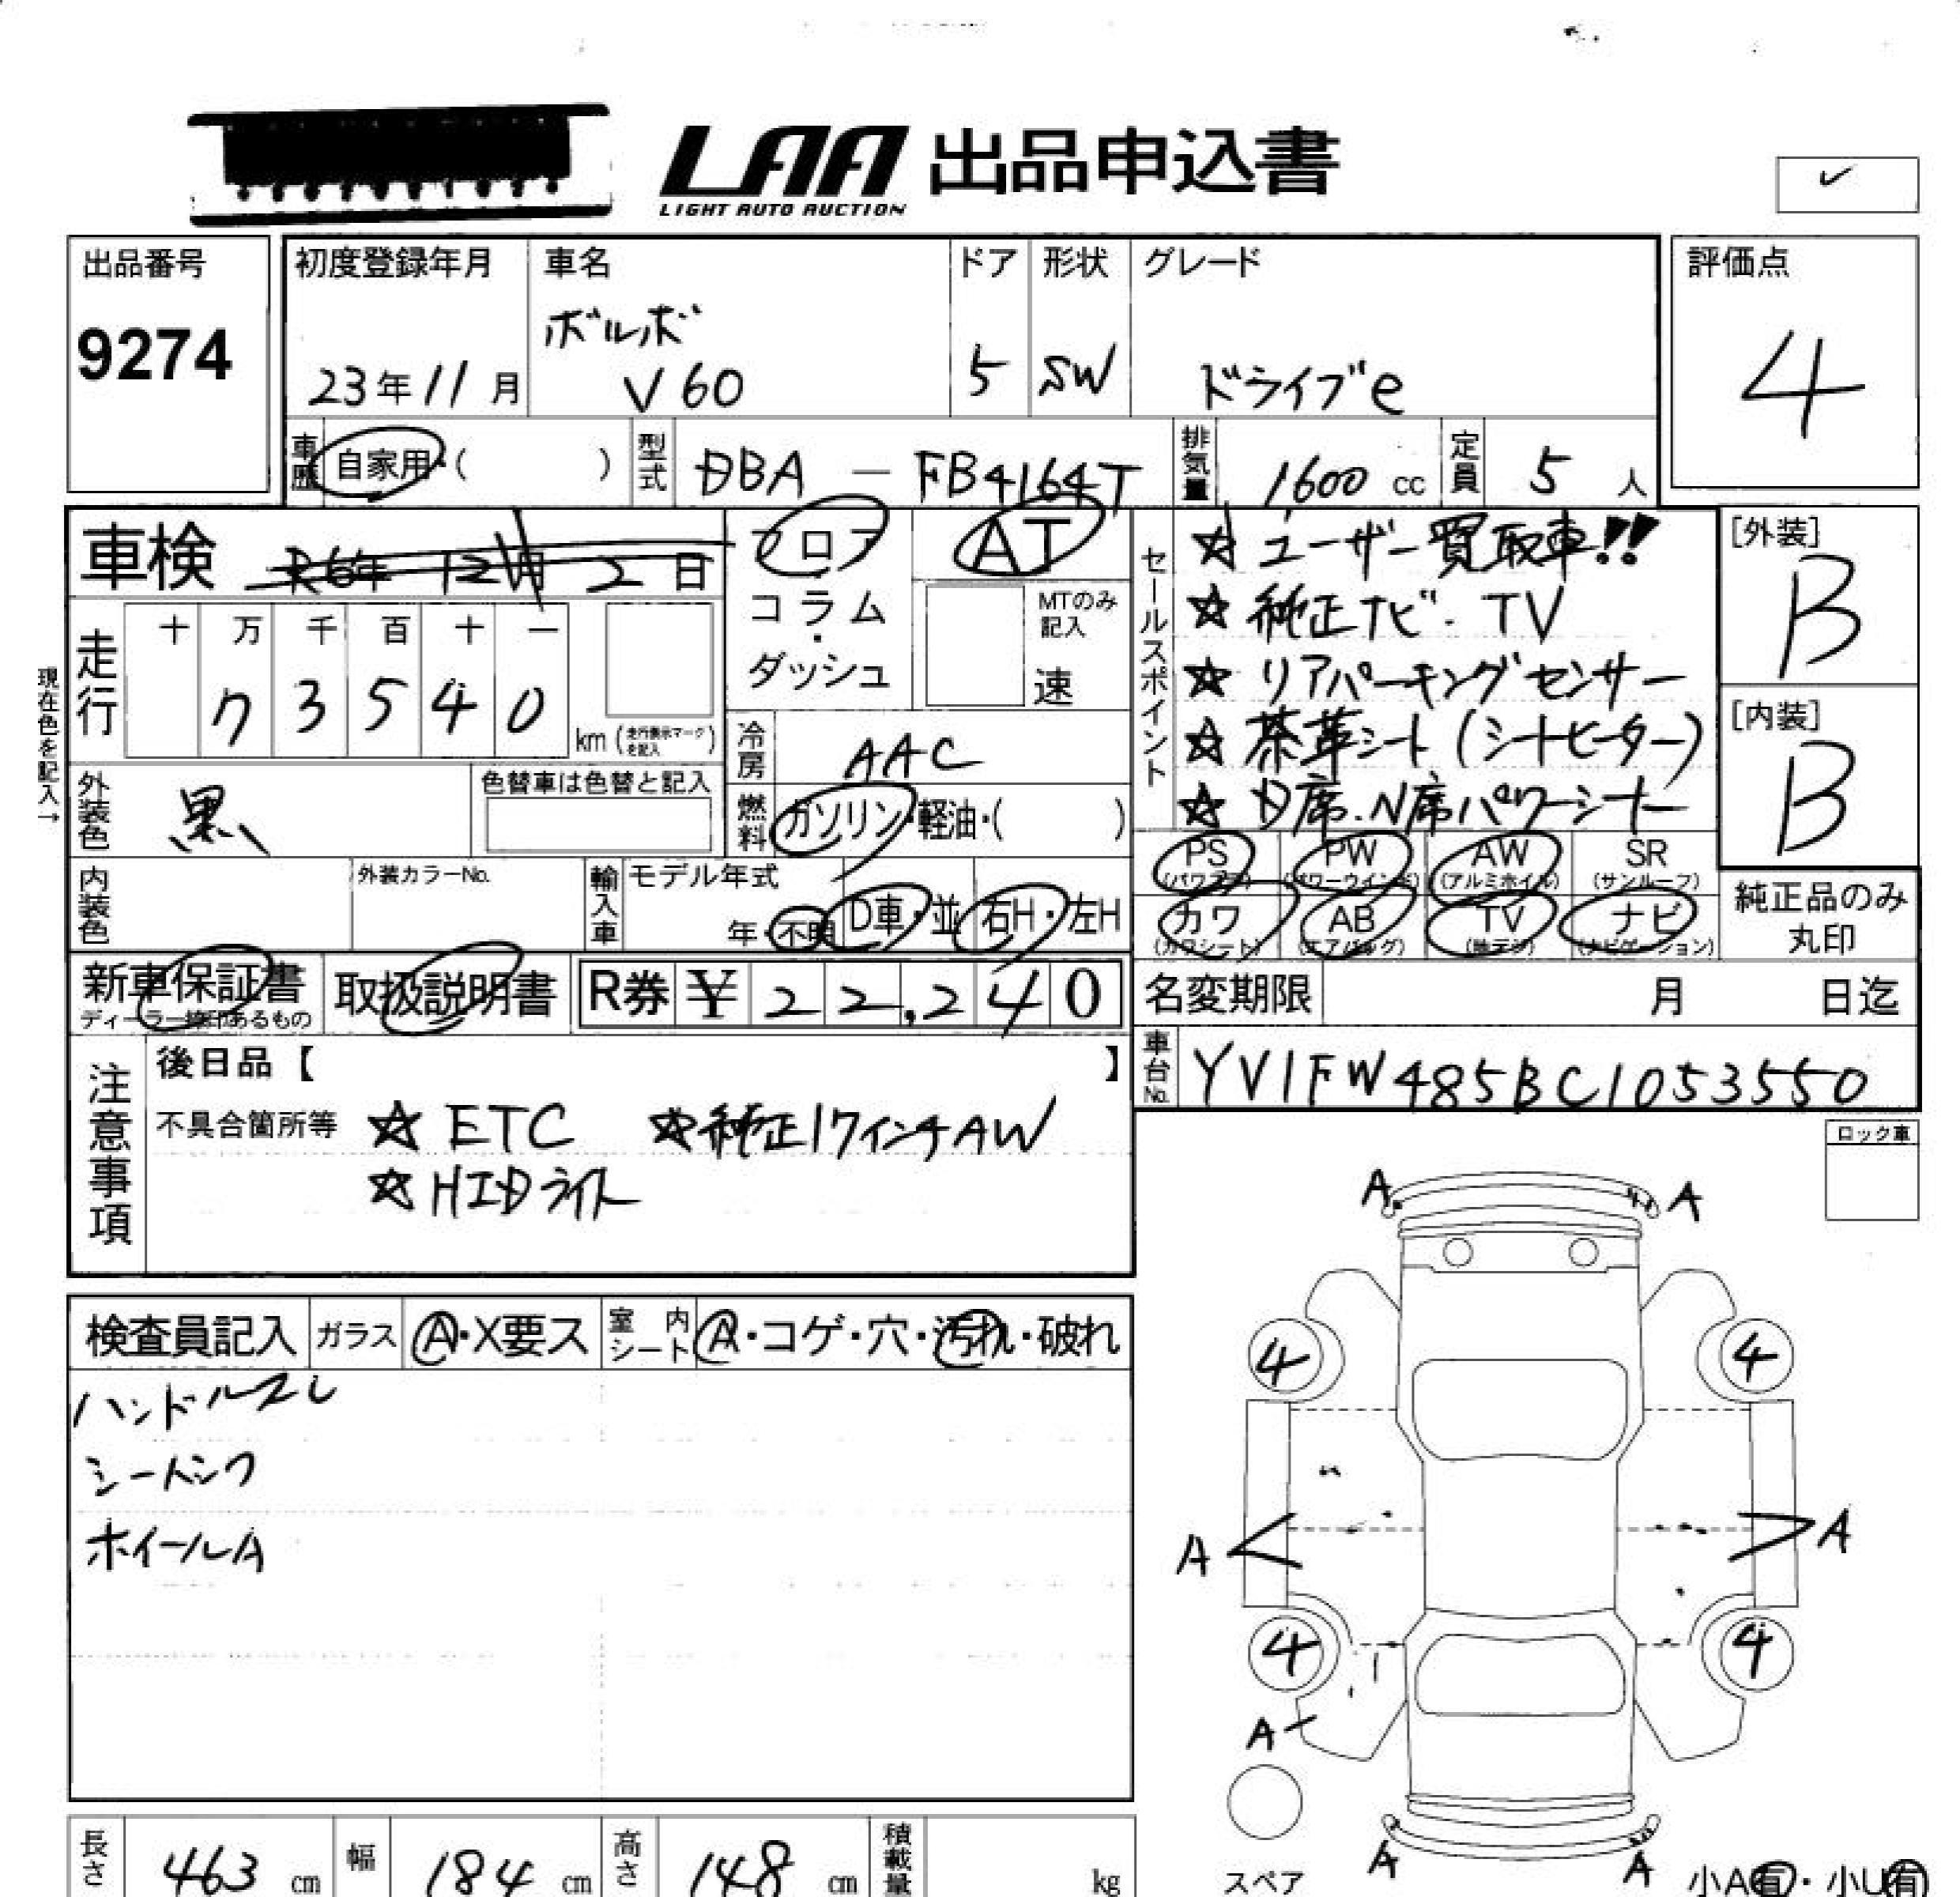 LAA 出品申込書
LIGHT AUTO AUCTION
✓
出品番号
9274
初度登録年月
23年11月
車名
ボルボ
V60
ドア
5
形状
SW
グレード
ドライブe
評価点
4
車歴
自家用・( )
型式
DBA - FB4164T
排気量
1600 cc
定員
5 人
車検
R6年 12月 2日
フロア
・
コラム
・
ダッシュ
AT
MTのみ
記入
速
走行
十 万 千 百 十 一
7 3 5 4 0
km (走行表示マークを記入)
現在色を記入→
冷房
AAC
外装色
黒
色替車は色替と記入
燃料
ガソリン・軽油・( )
内装色
外装カラーNo.
輸入車
モデル年式
年・不明
D車・並
右H・左H
セールスポイント
☆ ユーザー買取車!!
☆ 純正ナビ・TV
☆ リアパーキングセンサー
☆ 茶革シート(シートヒーター)
☆ D席.N席パワーシート
[外装]
B
[内装]
B
PS (パワステ)
PW (パワーウインド)
AW (アルミホイル)
SR (サンルーフ)
カワ (カワシート)
AB (エアバッグ)
TV (地デジ)
ナビ (ナビゲーション)
純正品のみ
丸印
新車保証書
ディーラー捺印あるもの
取扱説明書
R券 ¥ 22,240
名変期限 月 日迄
車台No.
YV1FW485BC1053550
注意事項
後日品【 】
不具合箇所等
☆ ETC ☆純正17インチAW
☆ HIDライト
ロック車
検査員記入
ガラス
A・X要ス
室内シート
A・コゲ・穴・汚れ・破れ
ハンドルスレ
シートシワ
ホイールA
A A
4 4
A A
4 4
A
A A
スペア
小A有・小U有
長さ 463 cm
幅 184 cm
高さ 148 cm
積載量 kg